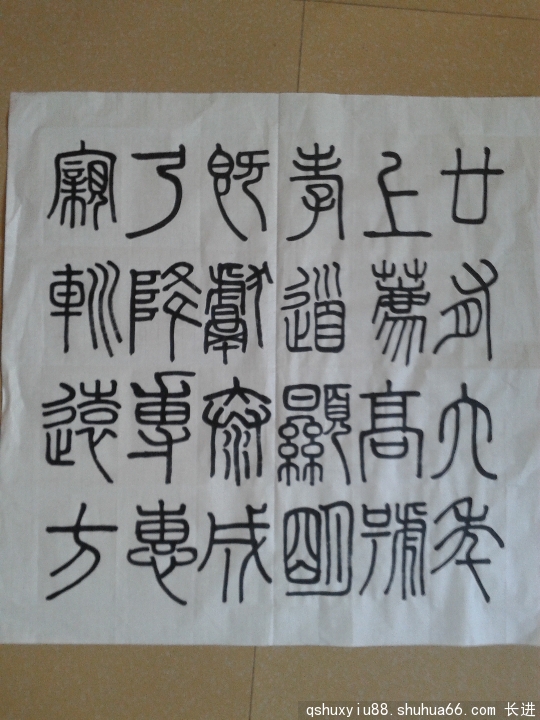 廿有六年
上薦高號
孝道顯明
既獻泰成
乃降專惠
寴䡅遠方
qshuxyiu88.shuhua66.com 长进